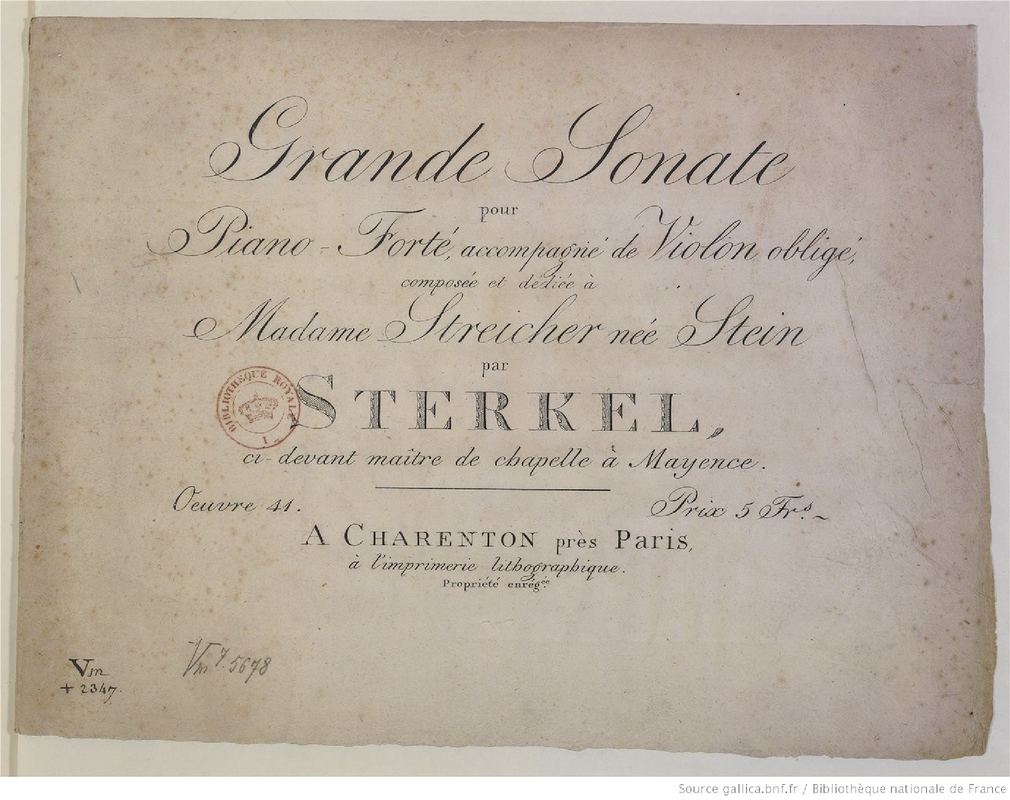 Grande Sonate
pour
Piano-Forté, accompagné de Violon obligé,
composée et dédiée à
Madame Streicher née Stein
par
STERKEL,
ci-devant maître de chapelle à Mayence.
Oeuvre 41.
Prix 5 Frs.
A CHARENTON près Paris,
à l'imprimerie lithographique.
Propriété enrég.ée
BIBLIOTHEQUE ROYALE
Vm
+ 2347.
Vm 7. 5678
Source gallica.bnf.fr / Bibliothèque nationale de France